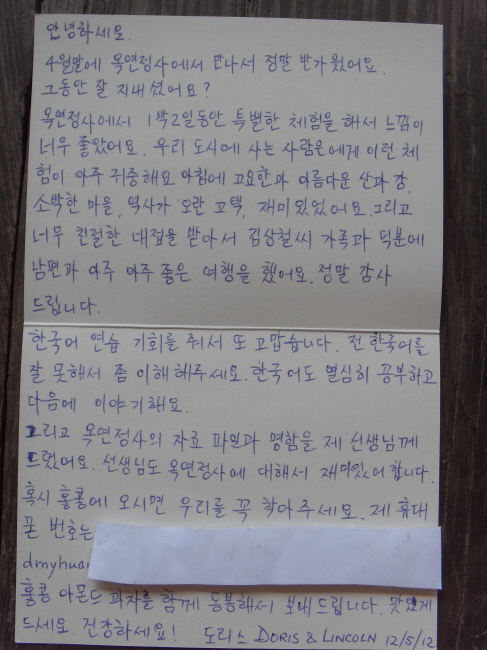 안녕하세요.
4월말에 옥연정사에서 만나서 정말 반가웠어요.
그동안 잘 지내셨어요?
옥연정사에서 1박2일동안 특별한 체험을 해서 느낌이
너무 좋았어요. 우리 도시에 사는 사람은에게 이런 체
험이 아주 귀중해요 아침에 고요한과 아름다운 산과 강,
소박한 마을, 역사가 오란 고택, 재미있었어요. 그리고
너무 친절한 대접을 받아서 김상철씨 가족과 덕분에
남편과 아주 아주 좋은 여행을 했어요. 정말 감사
드립니다.
한국어 연습 기회를 줘서 또 고맙습니다. 전 한국어를
잘 못해서 좀 이해해주세요. 한국어도 열심히 공부하고
다음에 이야기해요.
그리고 옥연정사의 자료 파일과 명함을 제 선생님께
드렸어요. 선생님도 옥연정사에 대해서 재미있어 합니다.
혹시 홍콩에 오시면 우리를 꼭 찾아주세요. 제 휴대
폰 번호는
dmyhuan
홍콩 아몬드 과자를 함께 동봉해서 보내드립니다. 맛있게
드세요. 건강하세요! 도리스 DORIS & LINCOLN 12/5/12